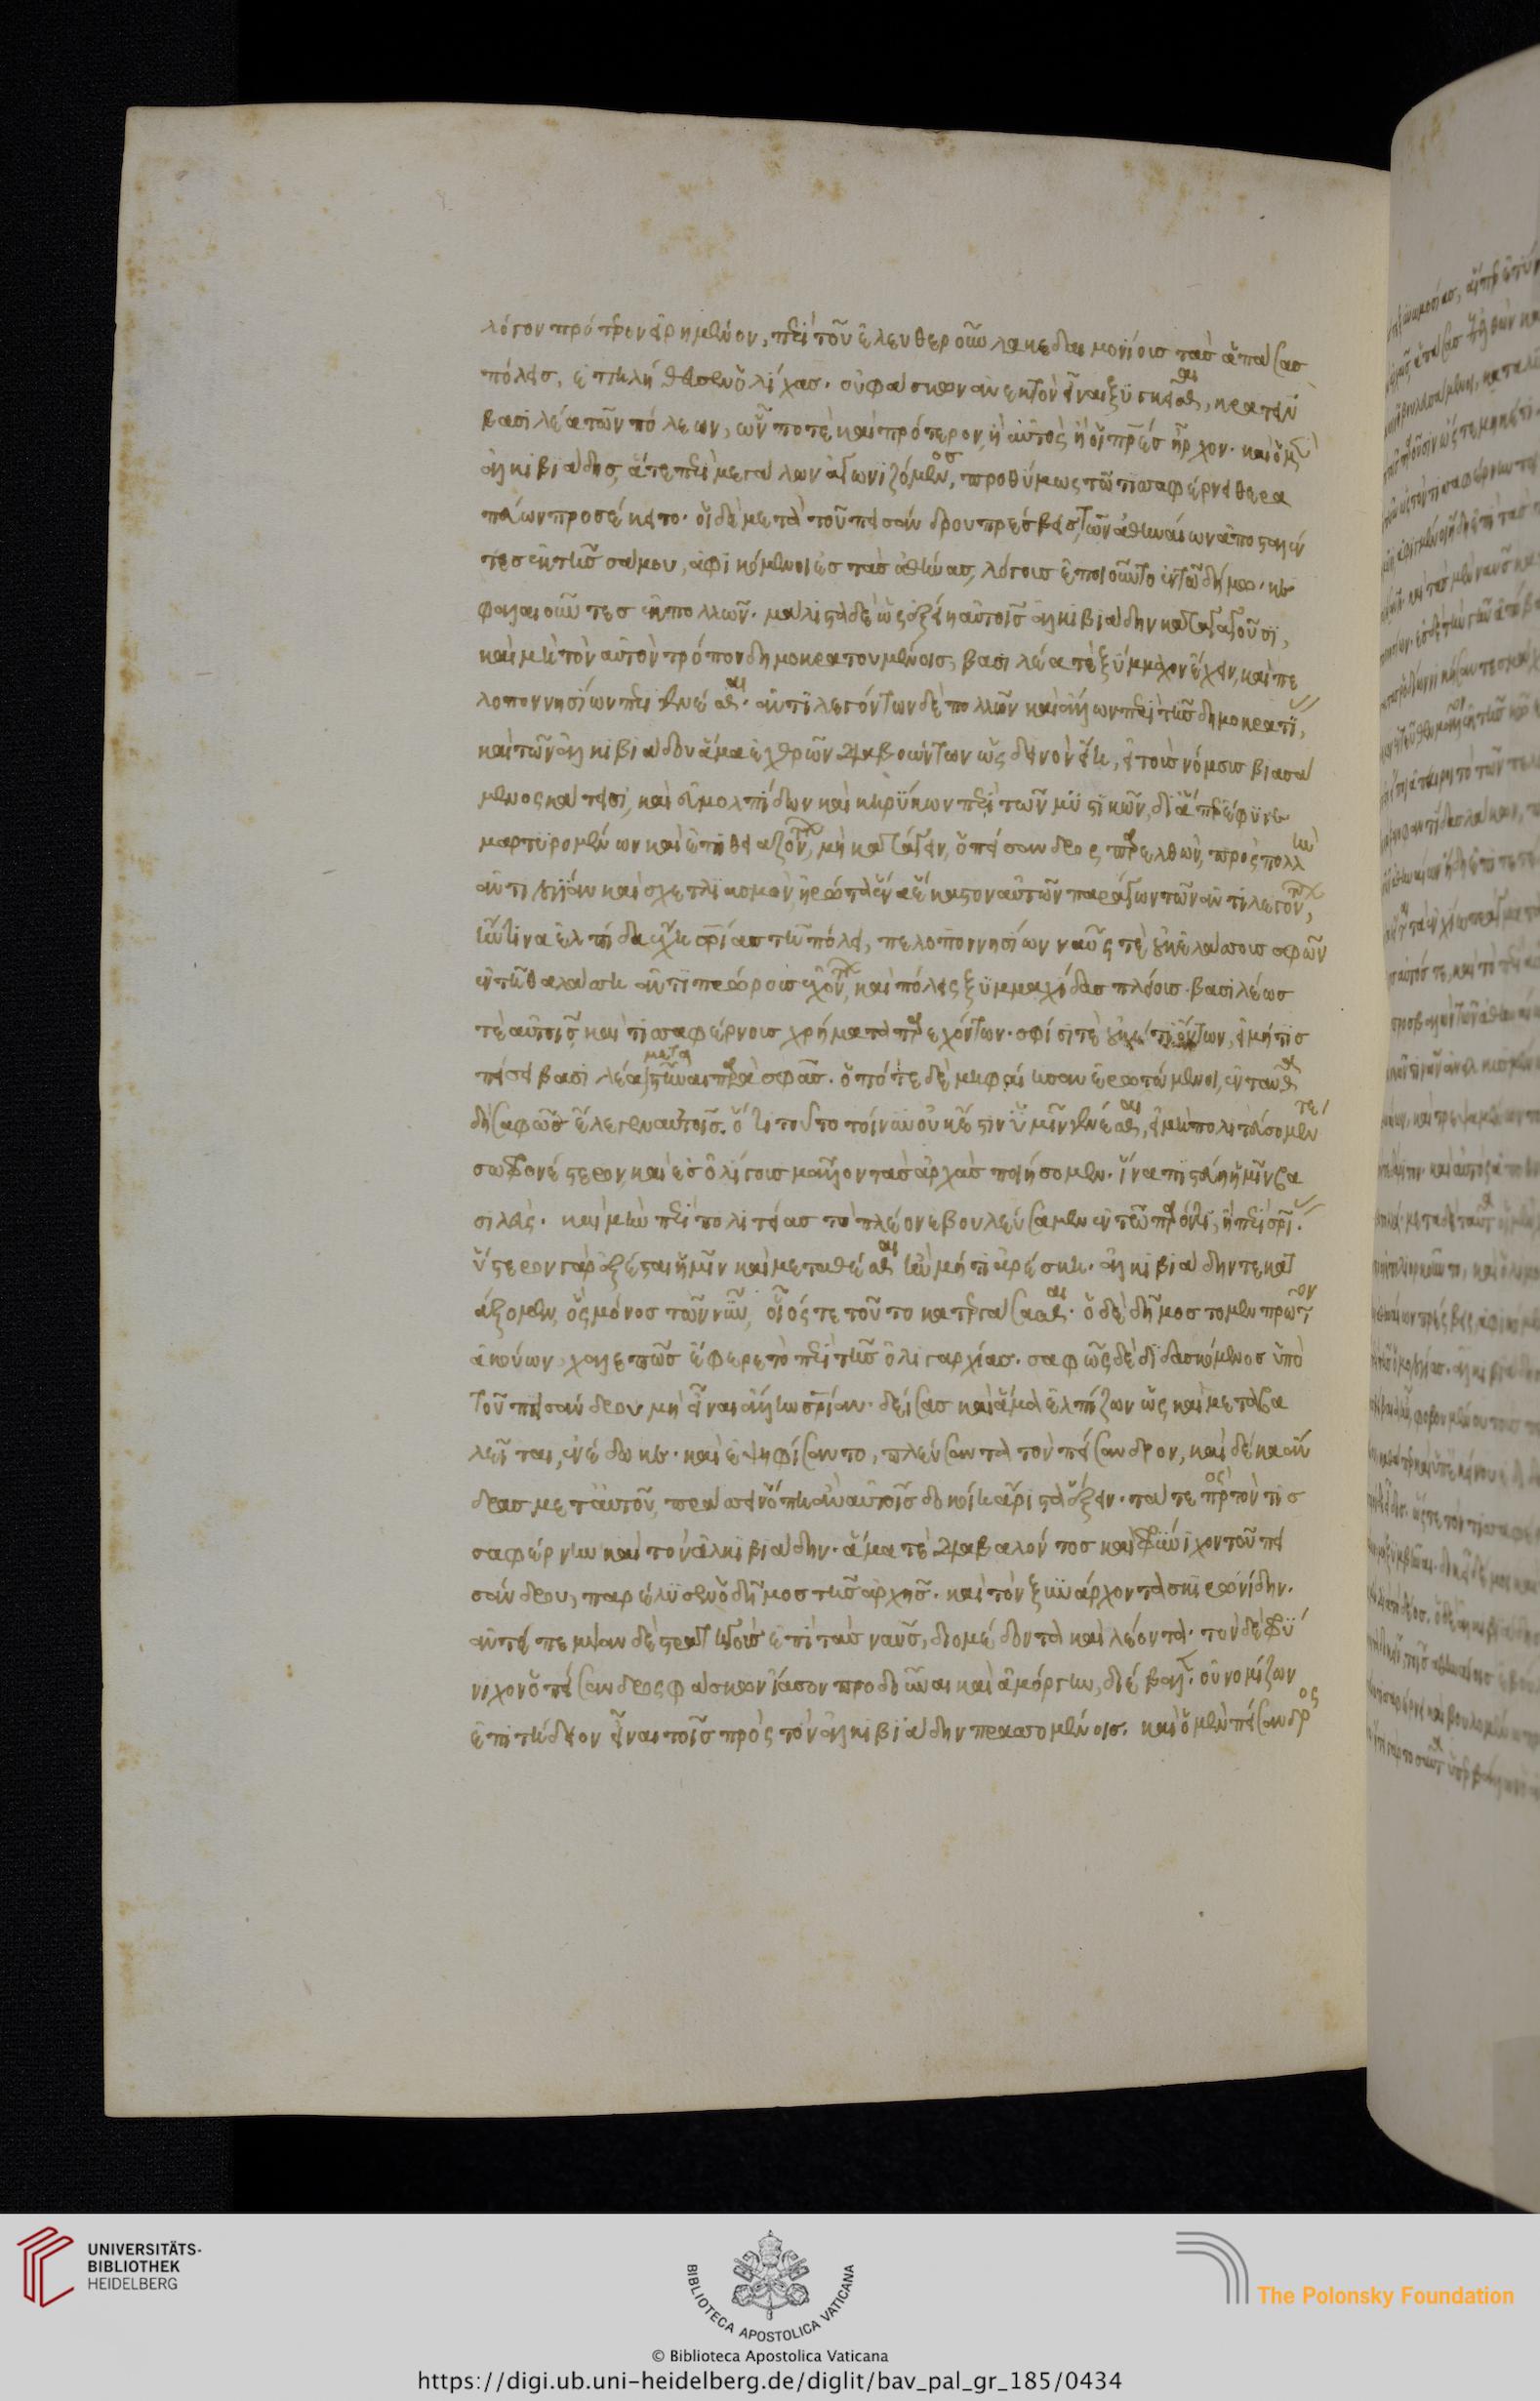 λόγον πρότερον εἰρημένον, περὶ τοῦ ἐλευθεροῦν λακεδαιμονίους τὰς ἁπάσας
πόλεις, ἐπηλήθευσεν ὁ λίχας. οὐ φάσκων ἀνεκτὸν εἶναι ξυγκεῖσθαι, κρατεῖν
βασιλέα τῶν πόλεων, ὧν ποτὲ καὶ πρότερον, ἢ αὐτὸς ἢ οἱ πρές ἦρχον. καὶ ὁ μὲν
ἀλκιβιάδης, ἅτε περὶ μεγάλων ἀγωνιζόμενος, προθύμως τῶ τισσαφέρνει θερα
πεύων προσέκειτο. οἱ δὲ μετὰ τοῦ πεισάνδρου πρέσβεις, τῶν ἀθηναίων ἀποσταλέν
τες ἐκ τῆς σάμου, ἀφικόμενοι ἐς τὰς ἀθήνας, λόγους ἐποιοῦντο ἐν τῶ δήμω. κε
φαλαιοῦντες ἐκ πολλῶν. μάλιστα δὲ ὡς ἐξείη αὐτοῖς ἀλκιβιάδην καταγαγοῦσι,
καὶ μὴ τὸν αὐτὸν τρόπον δημοκρατουμένοις, βασιλέα τὲ ξύμμαχον ἔχειν, καὶ πε
λοποννησίων περιγενέσθαι. ἀντιλεγόντων δὲ πολλῶν καὶ ἄλλων περὶ τῆς δημοκρατί,
καὶ τῶν ἀλκιβιάδου ἅμα ἐχθρῶν διαβοώντων ὡς δεινὸν εἴη, εἰ τοὺς νόμους βιασά
μενος κάτεισι, καὶ εὐμολπίδων καὶ κηρύκων περὶ τῶν μυστικῶν, δι' ἅπερ ἔφυγε
μαρτυρομένων καὶ ἐπιθειαζόντων, μὴ κατάγειν, ὁ πείσανδρος παρελθὼν, πρὸς πολλὴν
ἀντιλογίαν καὶ σχετλιασμὸν, ἠρώτα ἕνα ἕκαστον αὐτῶν παράγων τῶν ἀντιλεγόντων,
ἥντινα ἐλπίδα ἔχει σρίας τῆ πόλει, πελοποννησίων ναῦς τὲ οὐκ ἐλάσσους σφῶν
ἐν τῆ θαλάσση ἀντιπρώρους ἐχόντων, καὶ πόλεις ξυμμαχίδας πλείους. βασιλέως
τὲ αὐτοῖς, καὶ τισσαφέρνους χρήματα παρεχόντων. σφίσι τὲ οὐκέτι ὄντων, εἰ μή τις
πείσει βασιλέα μεταστῆναι παρὰ σφᾶς. ὁπότε δὲ μὴ φαίησαν ἐρωτώμενοι, ἐνταῦθα
δὴ σαφῶς ἔλεγεν αὐτοῖς. ὅτι τοῦτο τοίνυν οὐκ ἔστιν ὑμῖν γενέσθαι, εἰ μὴ πολιτεύσομέν τε
σωφρονέστερον, καὶ ἐς ὀλίγους μᾶλλον τὰς ἀρχὰς ποιήσομεν. ἵνα πιστεύη ἡμῖν βα
σιλεύς. καὶ μὴ περὶ πολιτείας τὸ πλέον βουλεύσωμεν ἐν τῶ παρόντι, ἢ περὶ σρί.
ὕστερον γὰρ ἐξέσται ἡμῖν καὶ μεταθέσθαι ἢν μή τι ἀρέσκη. ἀλκιβιάδην τε κατ
άξομεν, ὃς μόνος τῶν νῦν, οἷός τε τοῦτο κατεργάσασθαι. ὁ δὲ δῆμος τὸ μὲν πρῶτον
ἀκούων χαλεπῶς ἔφερε τὸ περὶ τῆς ὀλιγαρχίας. σαφῶς δὲ διδασκόμενος ὑπὸ
τοῦ πεισάνδρου μὴ εἶναι ἄλλην σρίαν. δείσας καὶ ἅμα ἐλπίζων ὡς καὶ μεταβα
λεῖται, ἐνέδωκε. καὶ ἐψηφίσαντο, πλεύσαντα τὸν πείσανδρον, καὶ δέκα ἄν
δρας μετ' αὐτοῦ, πράσσειν ὅπη ἂν αὐτοῖς δοκοίη ἄριστα ἕξειν. τά τε πρὸς τὸν τισ
σαφέρνην καὶ τὸν ἀλκιβιάδην. ἅμα τὲ διαβαλόντος καὶ φρύνιχον τοῦ πει
σάνδρου, παρέλυσεν ὁ δῆμος τῆς ἀρχῆς. καὶ τὸν ξυνάρχοντα σκιρωνίδην.
ἀντέπεμψαν δὲ στρατηγοὺς ἐπὶ τὰς ναῦς, διομέδοντα καὶ λέοντα. τὸν δὲ φρύ
νιχον ὁ πείσανδρος φάσκων ἴασον προδοῦναι καὶ ἀμόργην, διέβαλεν. οὐ νομίζων
ἐπιτήδειον εἶναι τοῖς πρὸς τὸν ἀλκιβιάδην πρασσομένοις. καὶ ὁ μὲν πείσανδρος
UNIVERSITÄTS-
BIBLIOTHEK
HEIDELBERG
BIBLIOTECA APOSTOLICA VATICANA
The Polonsky Foundation
© Biblioteca Apostolica Vaticana
https://digi.ub.uni-heidelberg.de/diglit/bav_pal_gr_185/0434